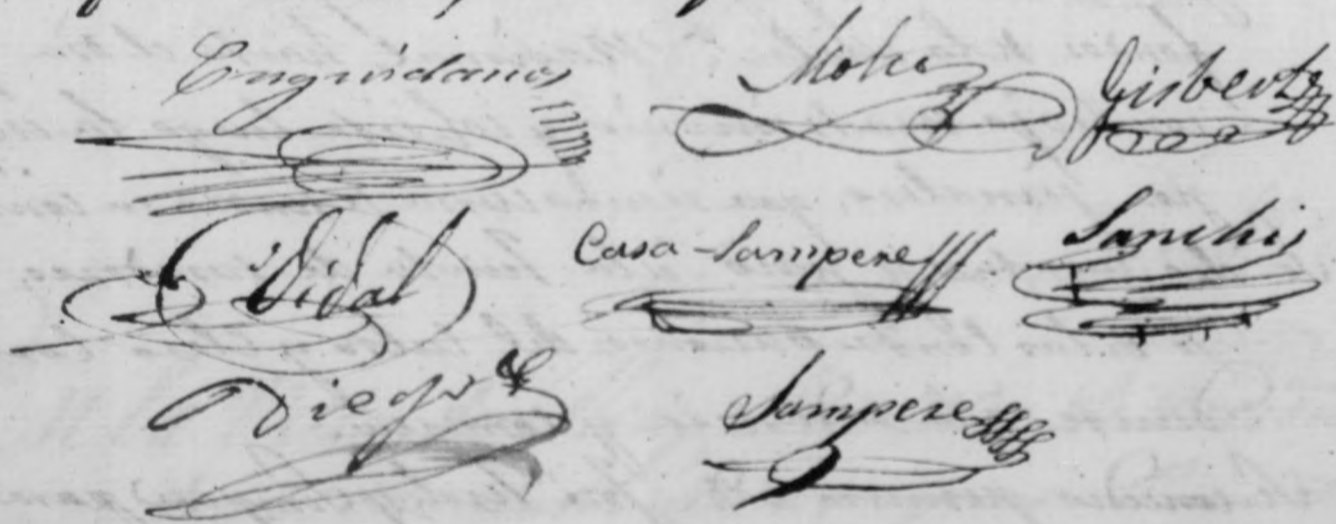 Enguidanos Molto Gisbert
Vidal Casa-Sampere Sanchis
Diego Sampere